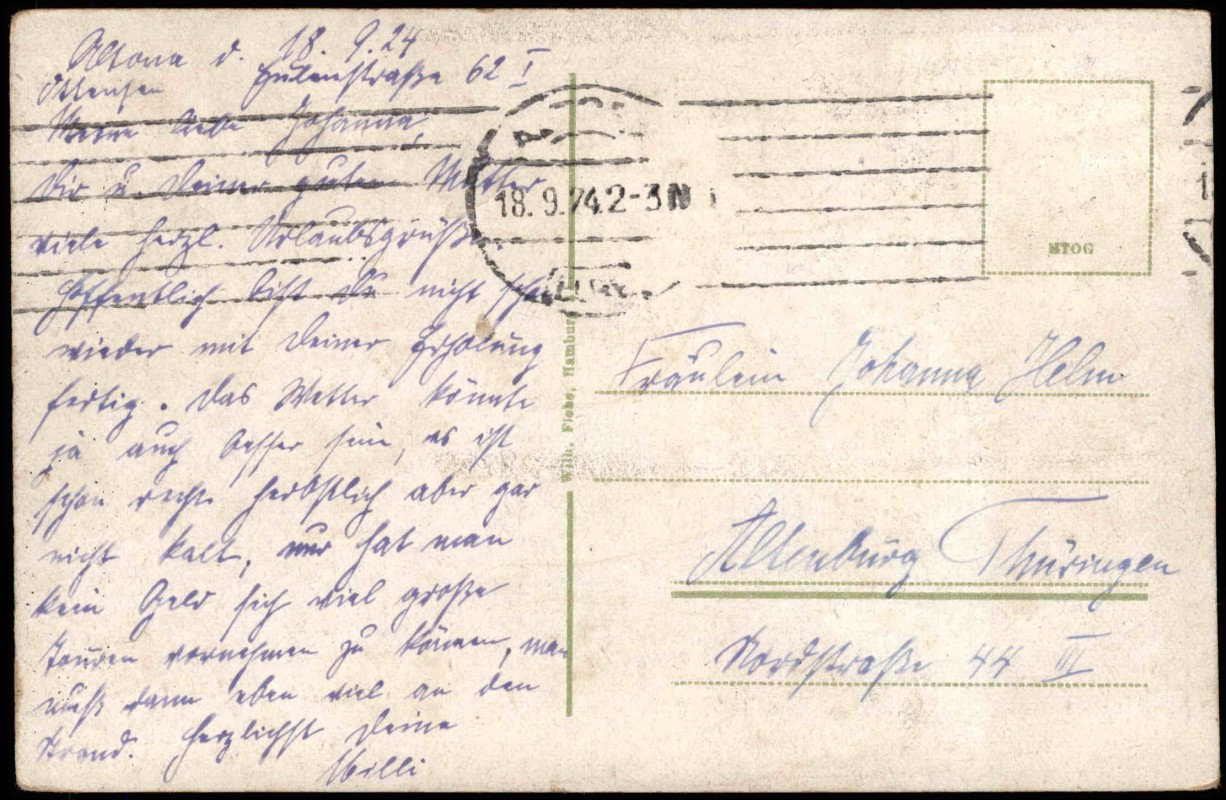 Altona d. 18.9.24
Ottensen Eulenstraße 62 I
Meine liebe Johanna,
Dir u. Deiner guten Mutter
viele herzl. Urlaubsgrüße.
Hoffentlich bist Du nicht schon
wieder mit Deiner Erholung
fertig. Das Wetter könnte
ja auch besser sein, es ist
schon recht herbstlich aber gar
nicht kalt, nur hat man
kein Geld sich viel große
Touren vornehmen zu können, man
muß dann eben viel an den
Strand. Herzlichst Deine
Willi
18.9.24.2-3N
HTOG
Wilh. Fiebe, Hamburg
Fräulein Johanna Helm
Altenburg Thüringen
Nordstraße 44 III